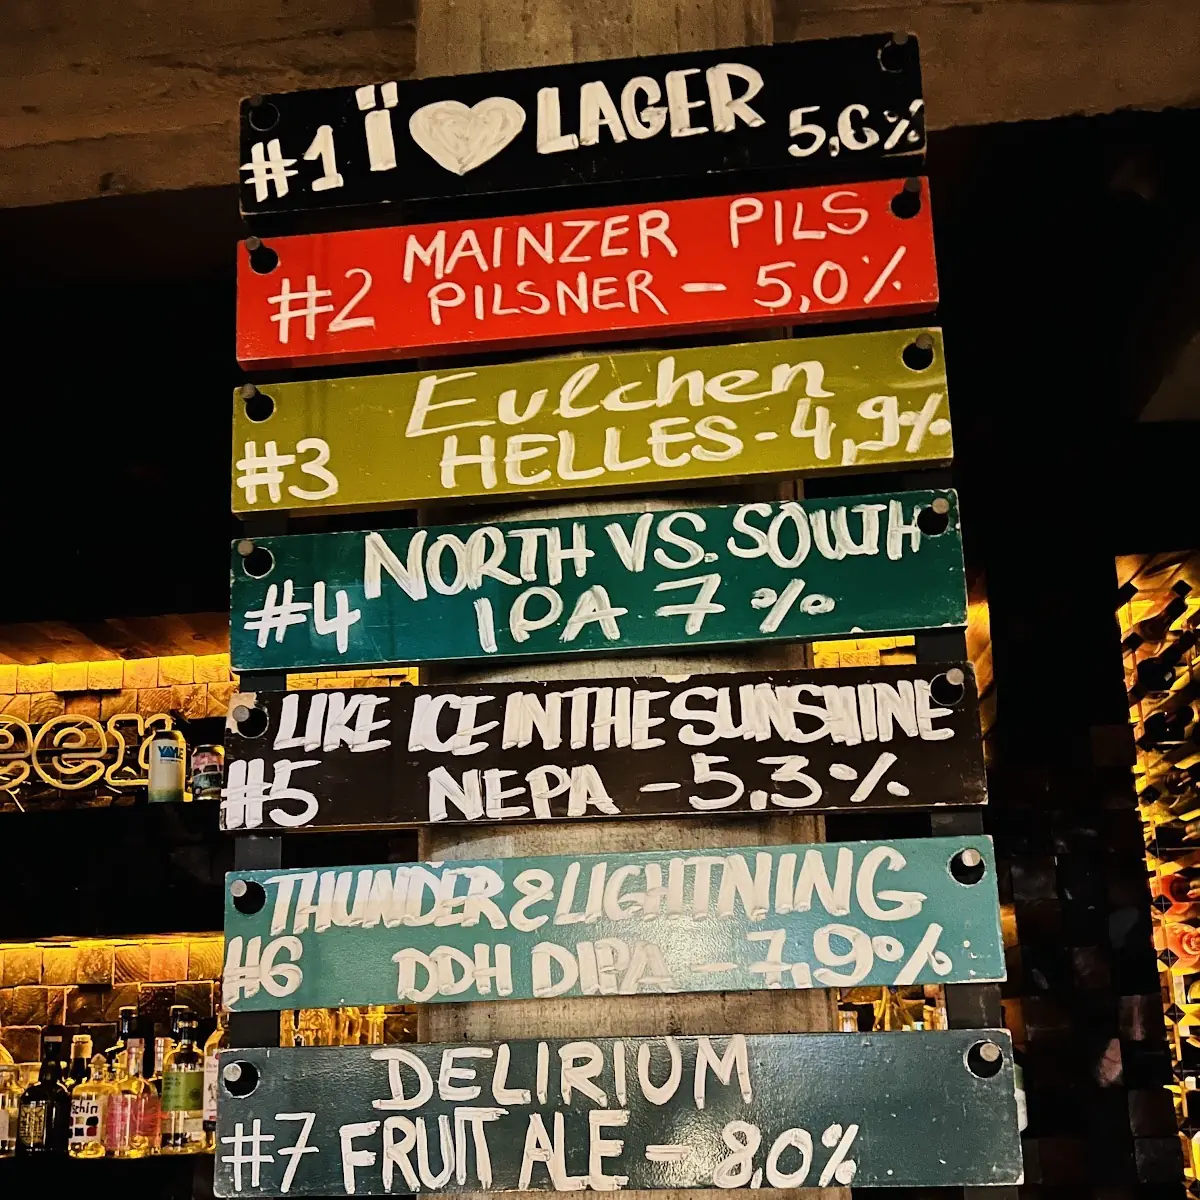 #1 Ï ♥ LAGER 5,6%
#2 MAINZER PILS
PILSNER - 5,0%
Eulchen
#3 HELLES - 4,9%
NORTH VS. SOUTH
#4 IPA 7%
LIKE ICE IN THE SUNSHINE
#5 NEPA - 5.3%
THUNDER & LIGHTNING
#6 DDH DIPA - 7,9%
DELIRIUM
#7 FRUIT ALE - 8,0%
eer
YANKEE
schin